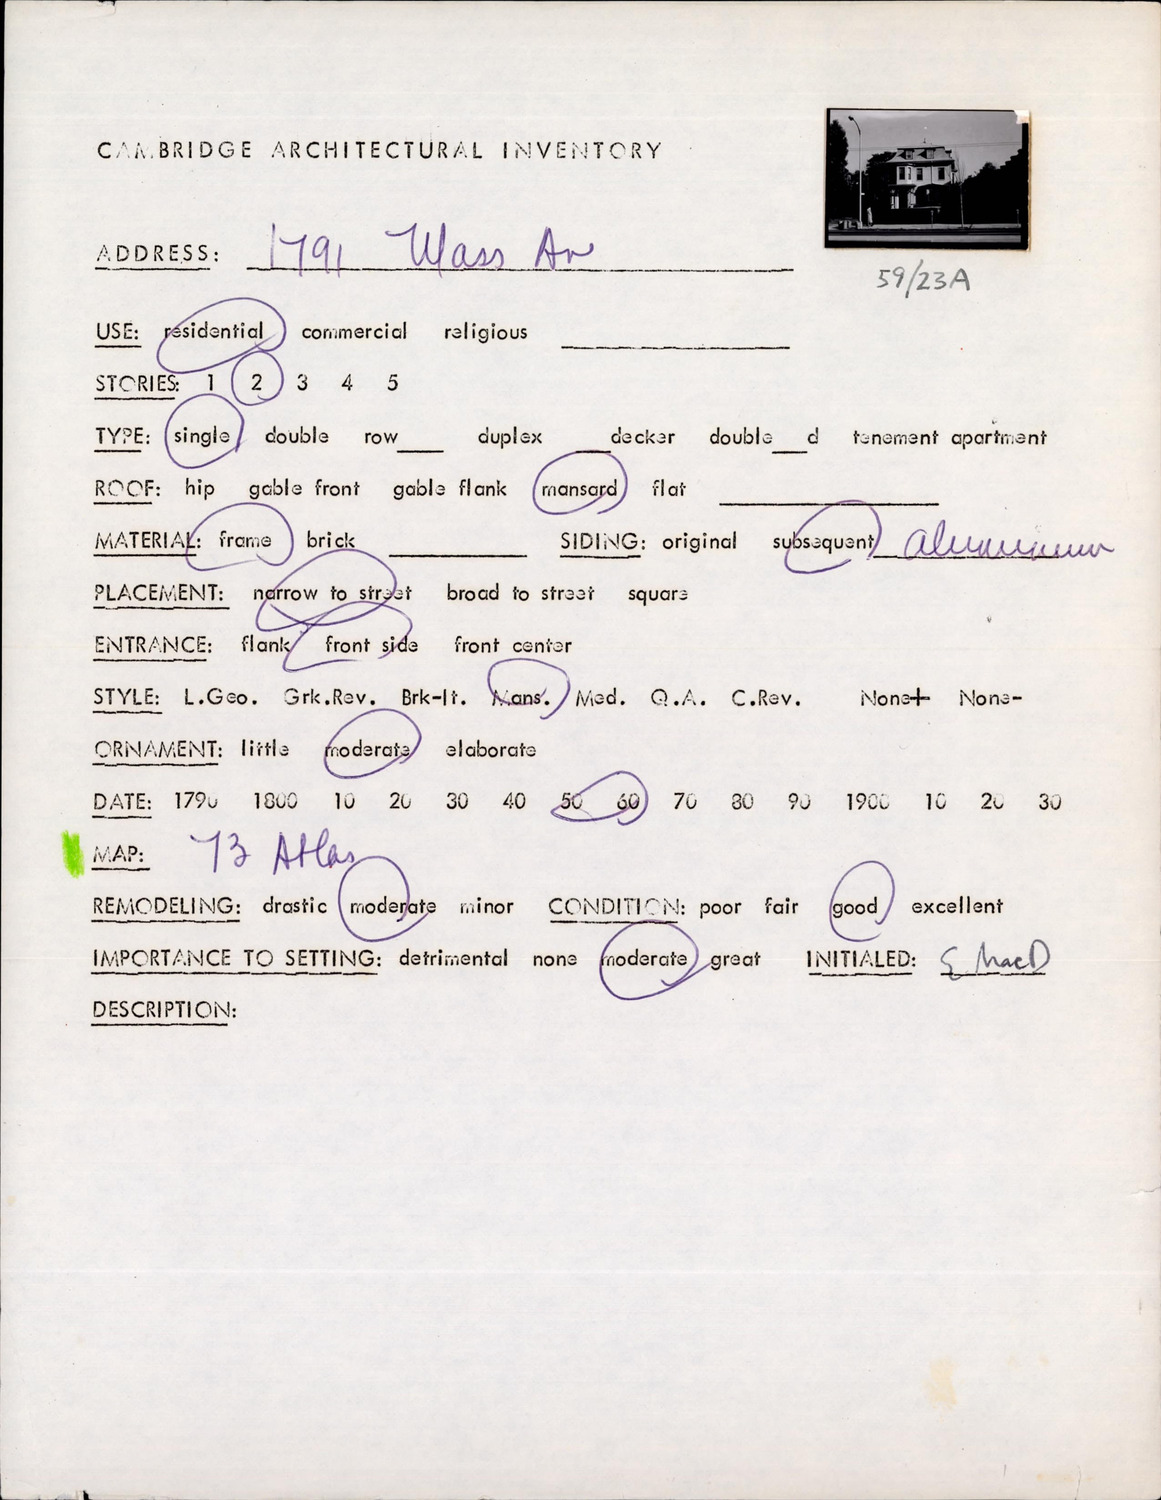 CAMBRIDGE ARCHITECTURAL INVENTORY
ADDRESS: 1791 Mass Av
59/23A
USE: residential commercial religious
STORIES: 1 2 3 4 5
TYPE: single double row___ duplex ___decker double___d tenement apartment
ROOF: hip gable front gable flank mansard flat
MATERIAL: frame brick SIDING: original subsequent aluminum
PLACEMENT: narrow to street broad to street square
ENTRANCE: flank front side front center
STYLE: L.Geo. Grk.Rev. Brk-It. Mans. Med. Q.A. C.Rev. None+ None-
ORNAMENT: little moderate elaborate
DATE: 1790 1800 10 20 30 40 50 60 70 80 90 1900 10 20 30
MAP: 73 Atlas
REMODELING: drastic moderate minor CONDITION: poor fair good excellent
IMPORTANCE TO SETTING: detrimental none moderate great INITIALED: E MacD
DESCRIPTION: